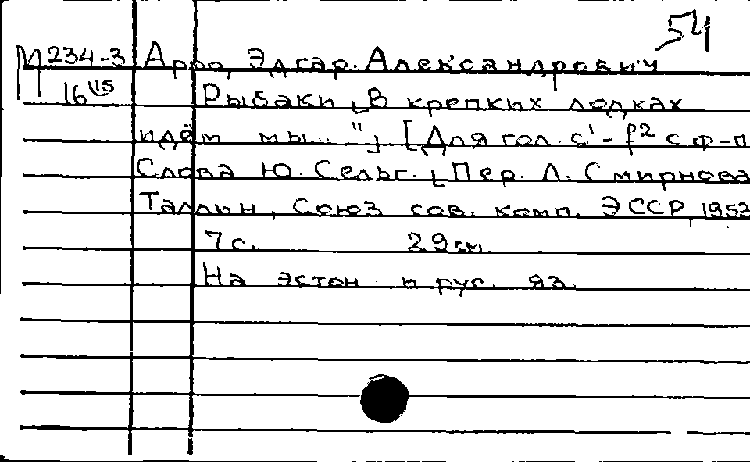 54
М 234-3 Арро, Эдгар Александрович
16 115 Рыбаки „В крепких лодках
идём мы... "„ [Для гол. c¹ - f² с ф-п
Слова Ю. Сельг. [Пер. Л. Смирнова
Таллин, Союз сов. комп. ЭССР, 1953
7 с. 29 см.
На эстон и рус. яз.